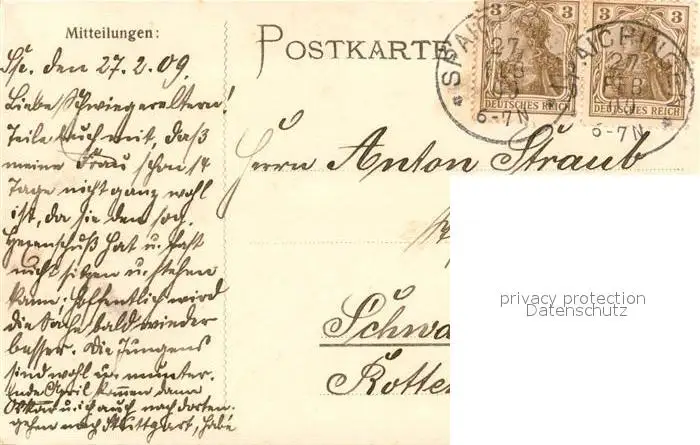 Mitteilungen:
Spe. den 27.2.09.
Liebe Schwiegereltern!
Teile Euch mit, daß
meine Frau schon 14
Tage nicht ganz wohl
ist, da sie den sog.
Hexenschuß hat u. fast
nicht sitzen u. stehen
kann. Hoffentlich wird
die Sache bald wieder
besser. Die Jungens
sind wohl u. munter.
Ende April kommen dann
Oskar u. ich auch nach dorten.
gehen nach Stuttgart, habe
POSTKARTE
3 3
3 3
DEUTSCHES REICH
DEUTSCHES REICH
SPAICHINGEN
27 FEB 09
6-7N
27 FEB 09
6-7N
Herrn Anton Straub
Schwa
Rotte
privacy protection
Datenschutz